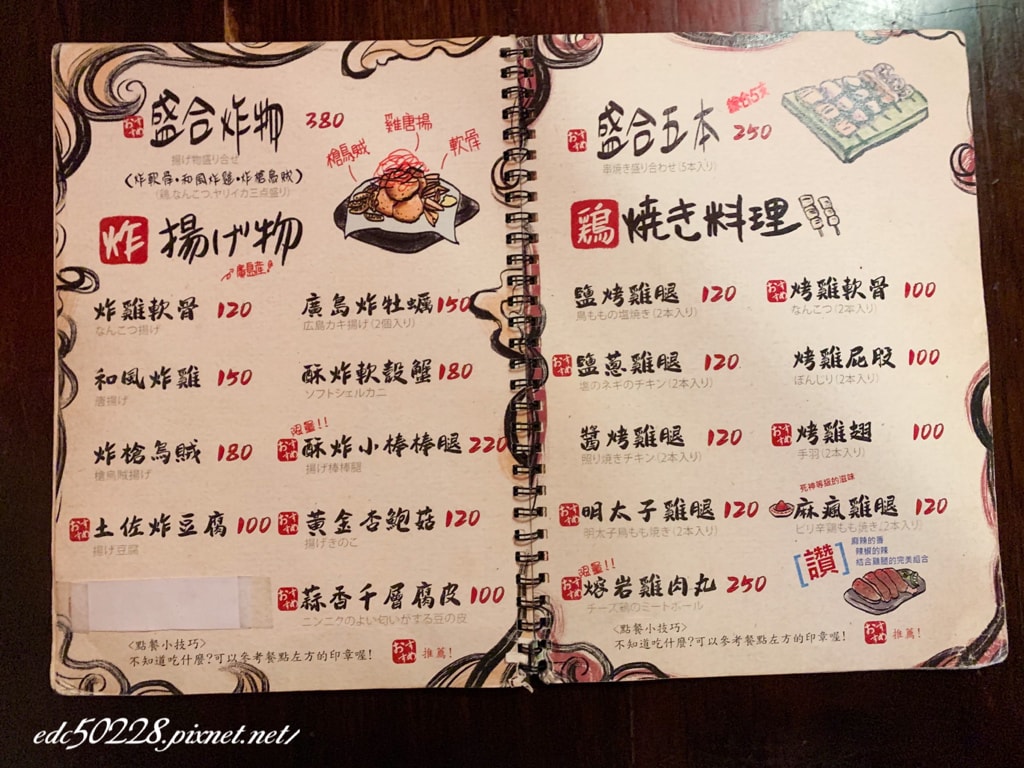 おすすめ 盛合炸物 380
揚げ物盛り合せ
(炸軟骨•和風炸雞•炸槍烏賊)
(鶏,なんこつ,ヤリイカ三点盛り)
槍烏賊
雞唐揚
軟骨
炸 揚げ物
廣島産
炸雞軟骨 120
なんこつ揚げ
廣島炸牡蠣 150
広島カキ揚げ(2個入り)
和風炸雞 150
唐揚げ
酥炸軟殼蟹 180
ソフトシェルカニ
炸槍烏賊 180
槍烏賊揚げ
限量!!
おすすめ 酥炸小棒棒腿 220
揚げ棒棒腿
おすすめ 土佐炸豆腐 100
揚げ豆腐
おすすめ 黃金杏鮑菇 120
揚げきのこ
おすすめ 蒜香千層腐皮 100
ニンニクのよい匂いがする豆の皮
<點餐小技巧>
不知道吃什麼?可以參考餐點左方的印章喔!
おすすめ 推薦!
おすすめ 盛合五本 250
綜合5支
串焼き盛り合わせ(5本入り)
鶏 焼き料理
鹽烤雞腿 120
鳥ももの塩焼き(2本入り)
おすすめ 烤雞軟骨 100
なんこつ(2本入り)
おすすめ 鹽蔥雞腿 120
塩のネギのチキン(2本入り)
烤雞屁股 100
ぼんじり(2本入り)
醬烤雞腿 120
照り焼きチキン(2本入り)
おすすめ 烤雞翅 100
手羽(2本入り)
おすすめ 明太子雞腿 120
明太子鳥もも焼き(2本入り)
死神等級的滋味
麻瘋雞腿 120
ピリ辛鶏もも焼き(2本入り)
限量!!
おすすめ 熔岩雞肉丸 250
チーズ鶏のミートボール
[讚]
麻辣的香
辣椒的辣
結合雞腿的完美組合
<點餐小技巧>
不知道吃什麼?可以參考餐點左方的印章喔!
おすすめ 推薦!
edc50228.pixnet.net/